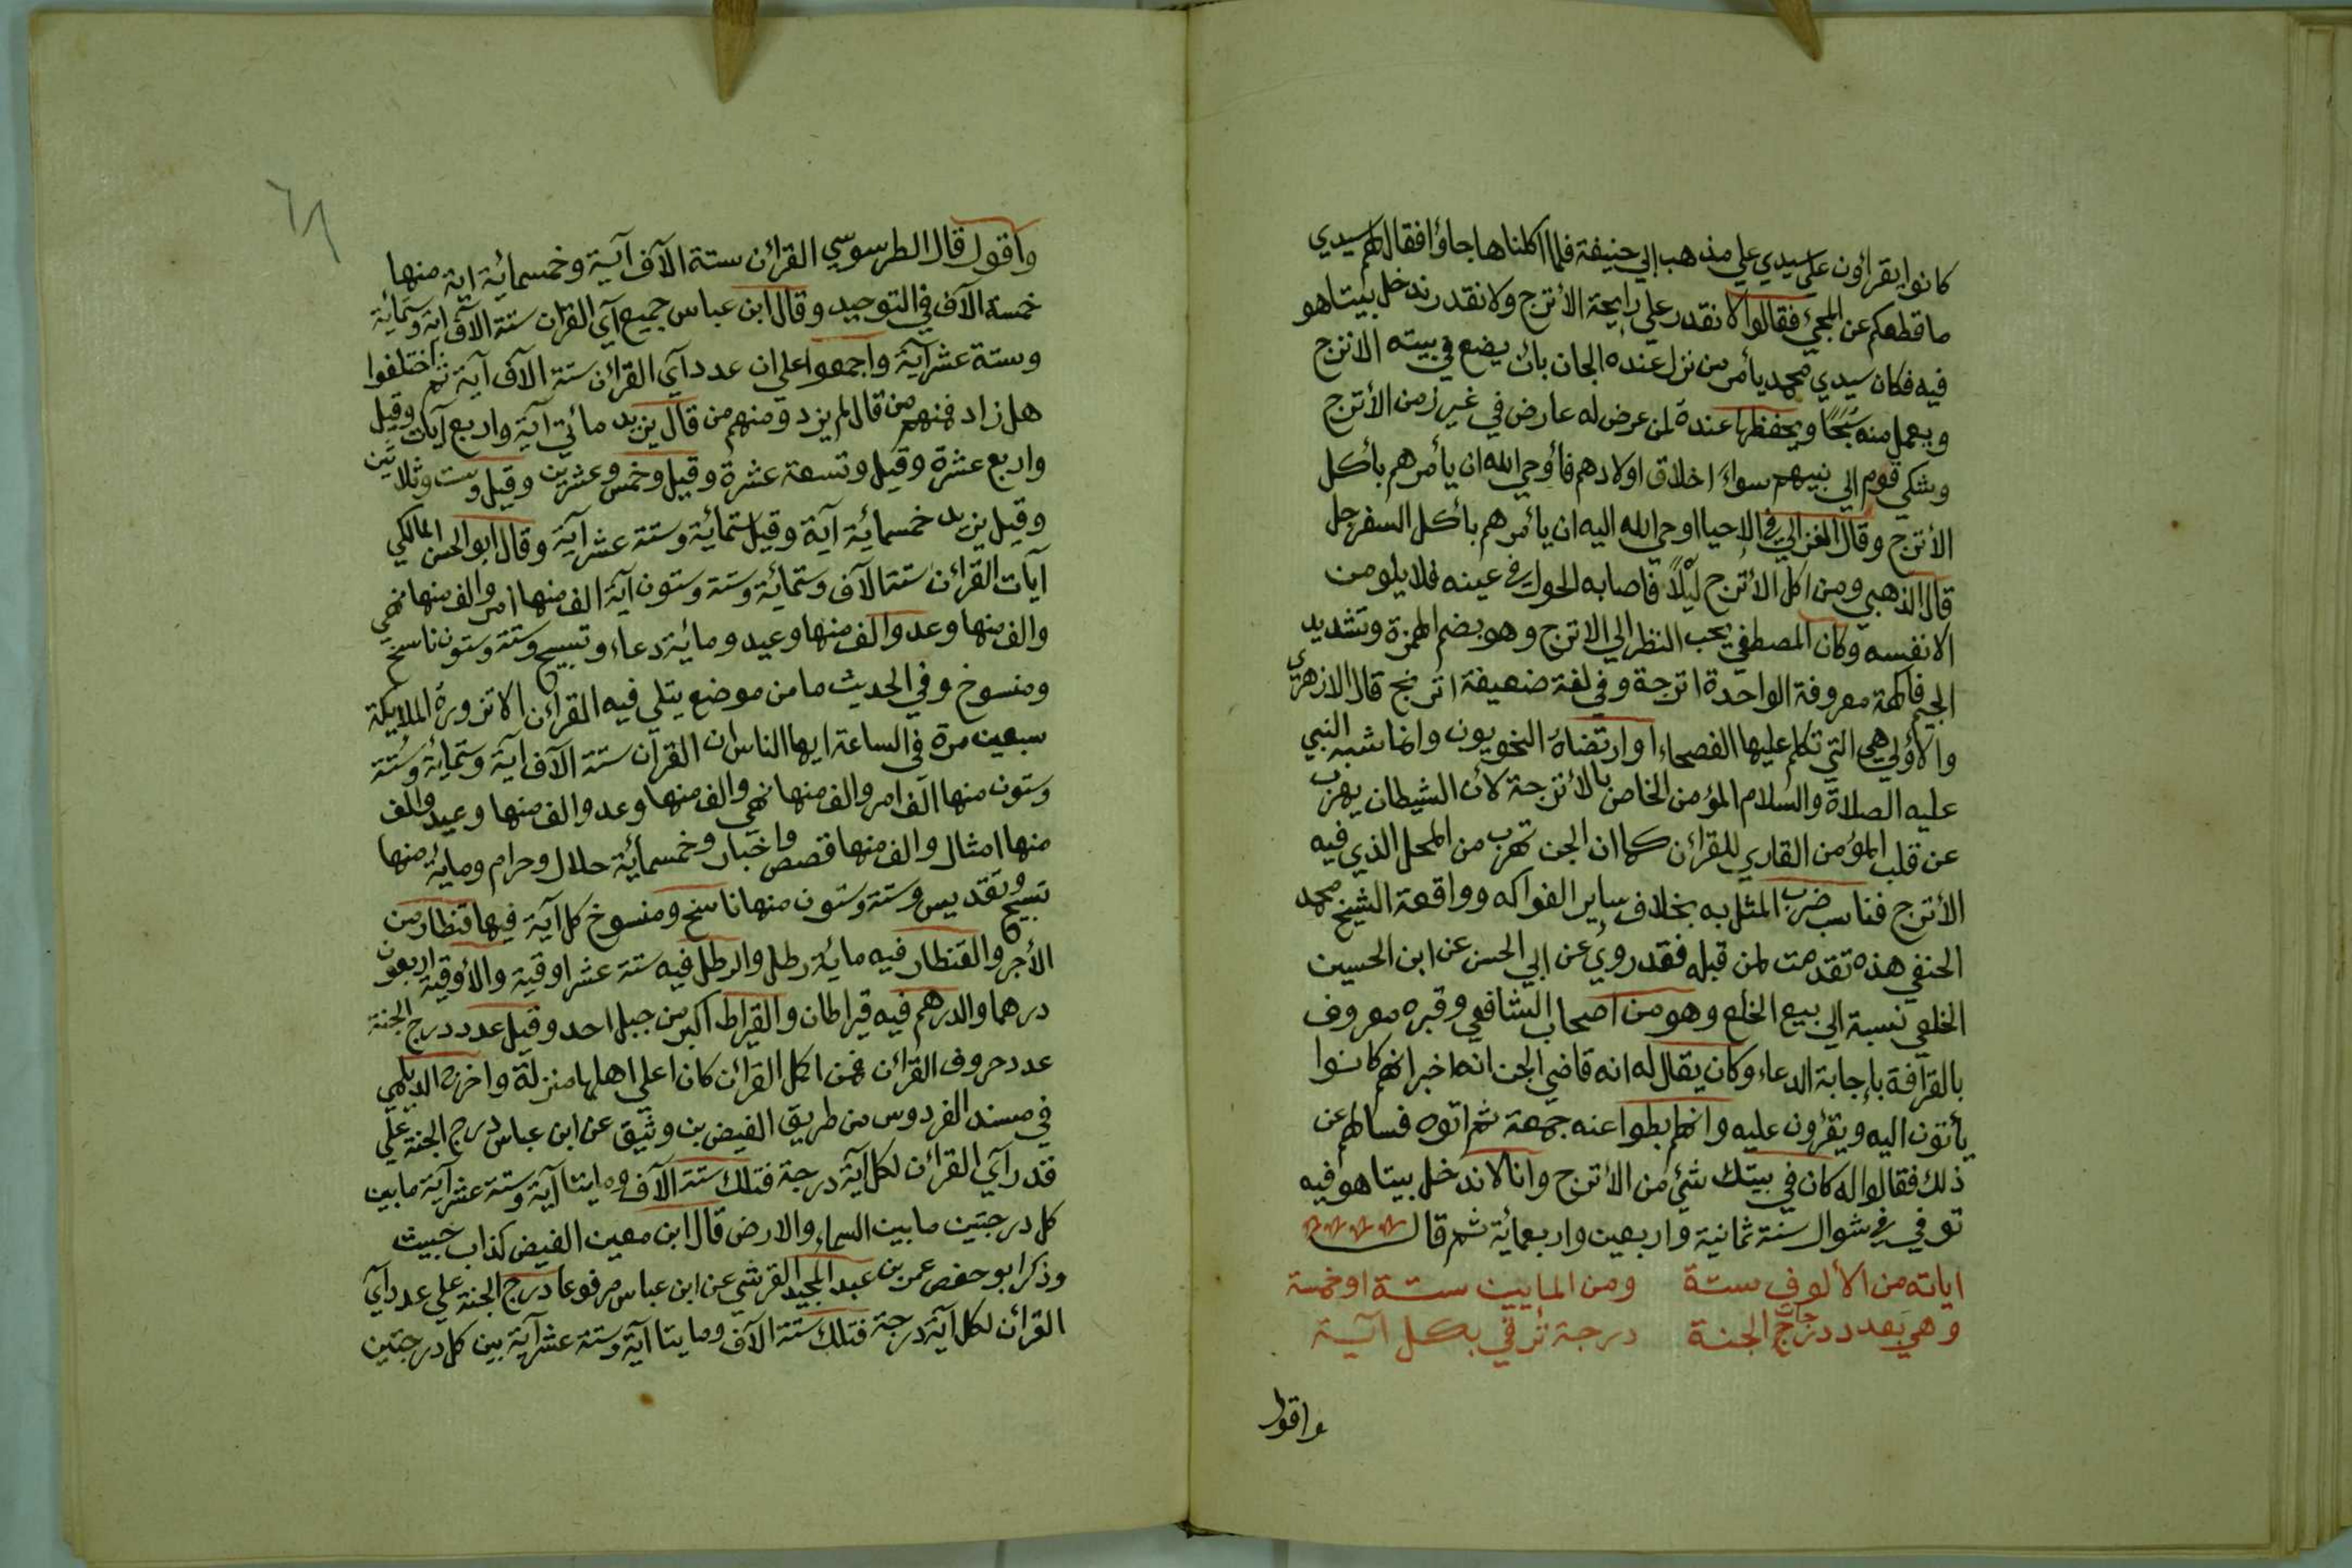 كانوا يقرأون على سيدي علي مذهب ابي حنيفة فلما اكلناها جاؤا فقال لهم سيدي
ما قطعكم عن المجئ فقالوا لا نقدر علي رايحة الأترج ولا نقدر ندخل بيتا هو
فيه فكان سيدي محمد يأمر من نزل عنده الجان بان يضع في بيته الاترج
ويعمل منه سبحًا ويحفظها عنده لمن عرض له عارض في غير زمن الأترج
وشكي قوم الي نبيهم سواء اخلاق اولادهم فأوحي الله ان يأمرهم بأكل
الأترج وقال الغزالي في الاحيا اوحي الله اليه ان يأمرهم بأكل السفرجل
قال الذهبي ومن اكل الأترج ليلًا فاصابه الحول في عينه فلا يلومن
الا نفسه وكان المصطفي يحب النظر الي الاترج وهو بضم الهمزة وتشديد
الجيم فاكهة معروفة الواحدة اترجة وفي لغة ضعيفة اترنج قال الازهري
والأولي هي التي تكلم عليها الفصحاء وارتضاه النحويون وانما شبه النبي
عليه الصلاة والسلام المؤمن الخاص بالأترجة لأن الشيطان يهرب
عن قلب المؤمن القاري للقرائن كما ان الجن تهرب من المحل الذي فيه
الأترج فناسب ضرب المثل به بخلاف ساير الفواكه وواقعة الشيخ محمد
الحنفي هذه تقدمت لمن قبله فقد روي عن ابي الحسن عن ابن الحسين
الخلعي نسبة الي بيع الخلع وهو من اصحاب الشافعي وقبره معروف
بالقرافة بإجابة الدعاء وكان يقال له انه قاضي الجن انه اخبر انهم كانوا
يأتون اليه ويقرؤن عليه وانهم بطوا عنه جمعة ثم اتوه فسالهم عن
ذلك فقالوا له كان في بيتك شئ من الأترج وانا لا ندخل بيتا هو فيه
توفي في شوال سنة ثمانية واربعين واربعمائة ثم قال
اياته من الألوف ستة ومن المايين ستة او خمسة
وهي بعدد درجاج الجنة درجة ترقي بكل آية
واقول
وأقول قال الطرسوسي القرائن ستة الآف آية وخمسمائة اية منها
خمسة الآف في التوحيد وقال ابن عباس جميع آي القران ستة الآف اية وستمائة
وستة عشر آية واجمعوا علي ان عدد آي القرائن ستة الآف آية ثم اختلفوا
هل زاد فمنهم من قال لم يزد ومنهم من قال يزيد مائتي آية واربع آيات وقيل
واربع عشرة وقيل وتسعة عشرة وقيل وخمس وعشرين وقيل وست وثلاثين
وقيل يزيد خمسمائة آية وقيل ستمائة وستة عشر آية وقال ابو الحسن المالكي
آيات القرائن ستة الآف وستمائة وستة وستون آية الف منها امر والف منها نهي
والف منها وعد والف منها وعيد ومائة دعاء وتسبيح وستة وستون ناسخ
ومنسوخ وفي الحديث ما من موضع يتلي فيه القرائن الا تزوره الملايكة
سبعين مرة في الساعة ايها الناس ان القرآن ستة الآف اية وستمائة وستة
وستون منها الف امر والف منها نهي والف منها وعد والف منها وعيد والف
منها امثال والف منها قصص واخبار وخمسمائة حلال وحرام ومائة منها
تسبيح وتقديس وستة وستون منها ناسخ ومنسوخ كل آية فيها قنطار من
الأجر والقنطار فيه مائة رطل والرطل فيه ستة عشر اوقية والأوقية اربعون
درهما والدرهم فيه قيراطان والقيراط اكبر من جبل احد وقيل عدد درج الجنة
عدد حروف القرائن فمن اكل القرائن كان اعلي اهلها منزلة واخرج الديلمي
في مسند الفردوس من طريق الفيض بن وثيق عن ابن عباس درج الجنة علي
قدر آي القرائن لكل آية درجة فتلك ستة الآف ومايتا آية وستة عشر آية ما بين
كل درجتين ما بين السماء والارض قال ابن معين الفيض كذاب خبيث
وذكر ابو حفص عمر بن عبد المجيد القرشي عن ابن عباس مرفوعا درج الجنة علي عدد آي
القرائن لكل آية درجة فتلك ستة الآف ومايتا آية وستة عشر آية بين كل درجتين